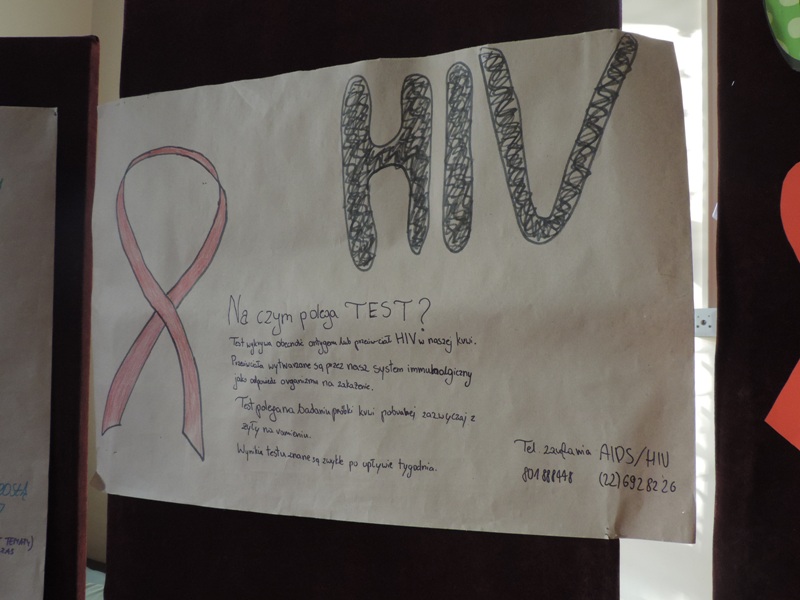 HIV
Na czym polega TEST?
Test wykrywa obecność antygenu lub przeciwciał HIV w naszej krwi.
Przeciwciała wytwarzane są przez nasz system immunologiczny
jako odpowiedź organizmu na zakażenie.
Test polega na badaniu próbki krwi pobranej zazwyczaj z
żyły na ramieniu.
Wyniki testu znane są zwykle po upływie tygodnia.
Tel. zaufania AIDS/HIV
801 888 448 (22) 692 82 26
TEMATY)